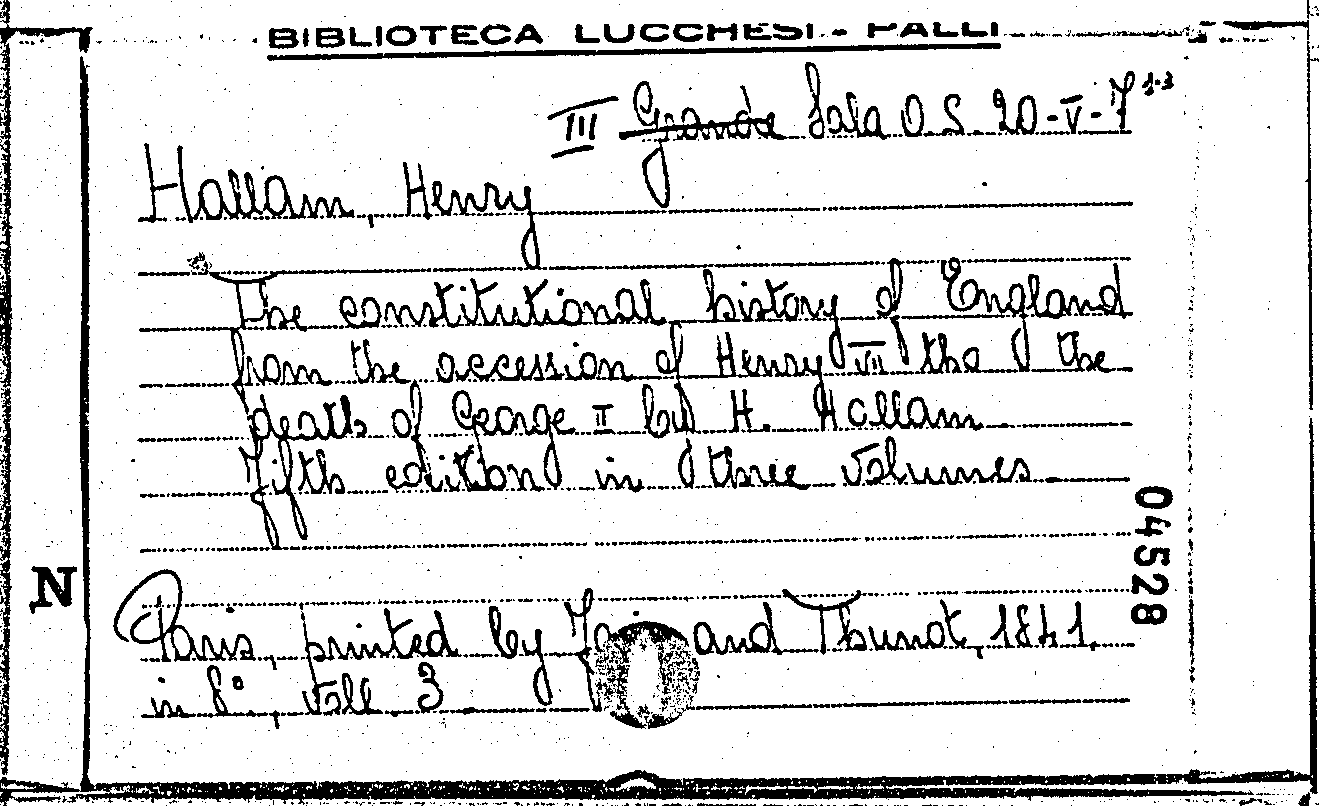 BIBLIOTECA LUCCHESI - PALLI
III Grande Sala O.S. 20-V-7 1-3
Hallam, Henry
The constitutional history of England
from the accession of Henry VII tho the
death of George II by H. Hallam
Fifth edition in three volumes
04528
N
Paris, printed by and Thunot, 1841.
in 8°, voll. 3